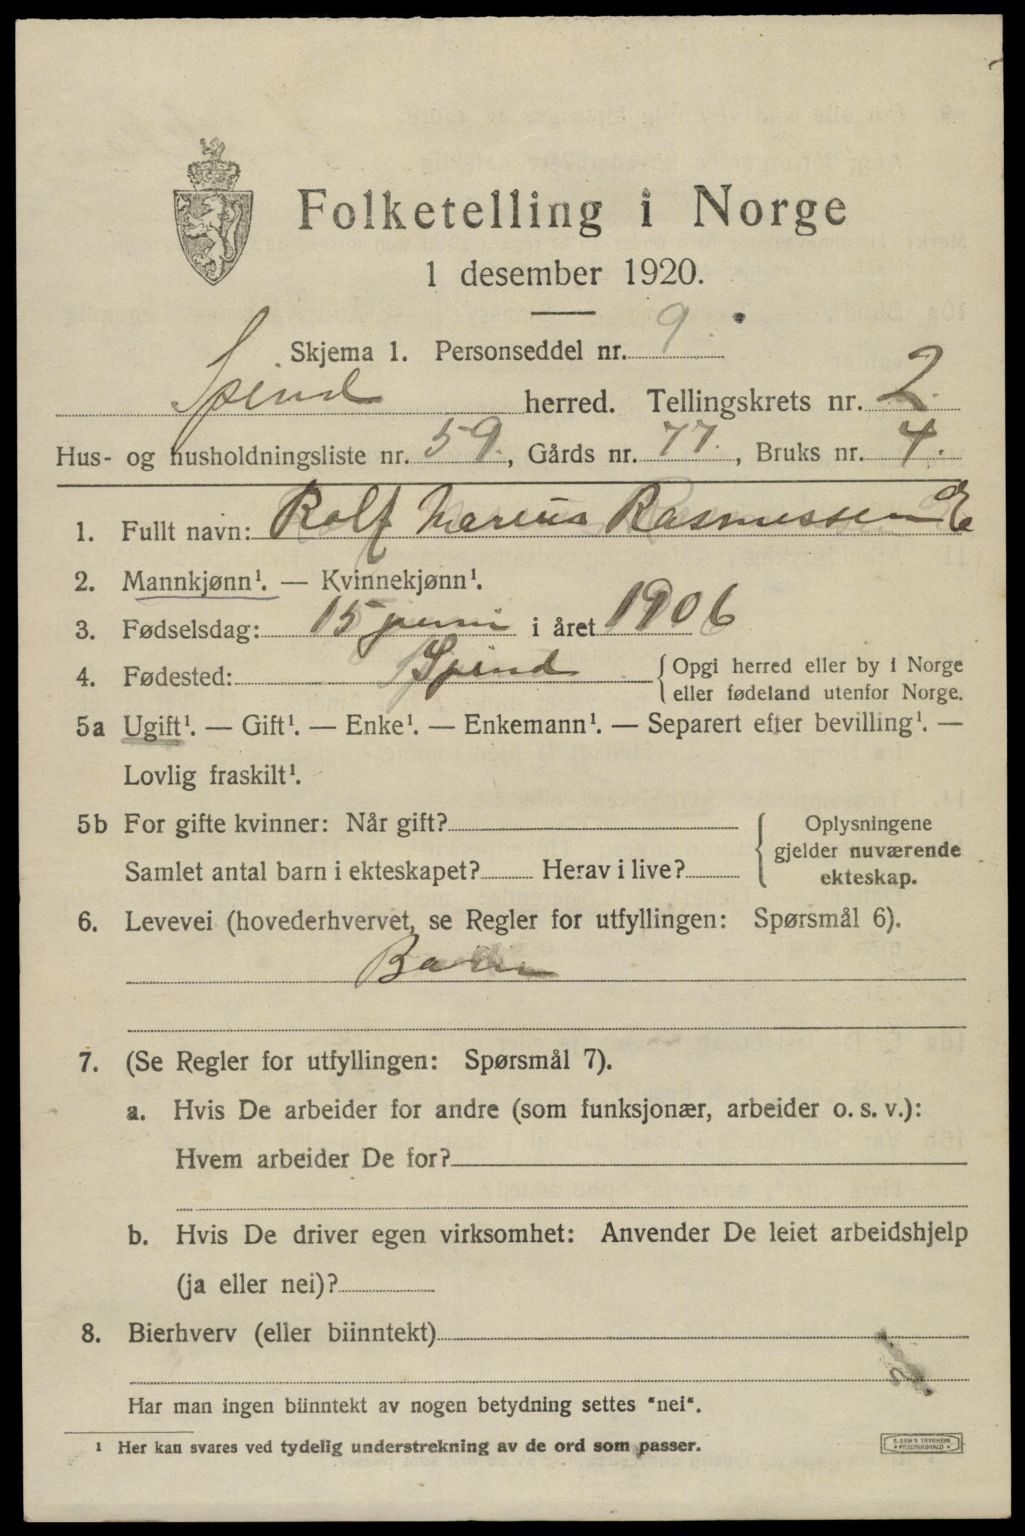 Folketelling i Norge
1 desember 1920.
Skjema 1. Personseddel nr. 9.
Spind herred. Tellingskrets nr. 2.
Hus- og husholdningsliste nr. 59., Gårds nr. 77., Bruks nr. 4.
1. Fullt navn: Rolf Marius Rasmussen
2. Mannkjønn¹. — Kvinnekjønn¹.
3. Fødselsdag: 15 juni i året 1906
4. Fødested: Spind { Opgi herred eller by i Norge
eller fødeland utenfor Norge.
5a Ugift¹. — Gift¹. — Enke¹. — Enkemann¹. — Separert efter bevilling¹. —
Lovlig fraskilt¹.
5b For gifte kvinner: Når gift?
Samlet antal barn i ekteskapet? Herav i live?
{ Oplysningene
gjelder nuværende
ekteskap.
6. Levevei (hovederhvervet, se Regler for utfyllingen: Spørsmål 6).
Barn
7. (Se Regler for utfyllingen: Spørsmål 7).
a. Hvis De arbeider for andre (som funksjonær, arbeider o. s. v.):
Hvem arbeider De for?
b. Hvis De driver egen virksomhet: Anvender De leiet arbeidshjelp
(ja eller nei)?
8. Bierhverv (eller biinntekt)
Har man ingen biinntekt av nogen betydning settes "nei".
¹ Her kan svares ved tydelig understrekning av de ord som passer.